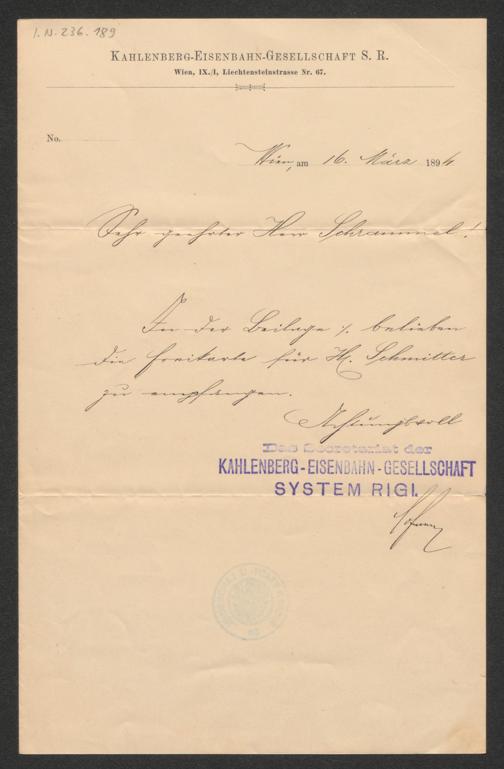 I. N. 236.189
KAHLENBERG-EISENBAHN-GESELLSCHAFT S. R.
Wien, IX./1, Liechtensteinstrasse Nr. 67.
No.
Wien, am 16. März 1894
Sehr geehrter Herr Schrammel!
In der Beilage ·/. belieben
die Freikarte für H. Schmitter
zu empfangen.
Achtungsvoll
Das Secretariat der
KAHLENBERG-EISENBAHN-GESELLSCHAFT
SYSTEM RIGI.